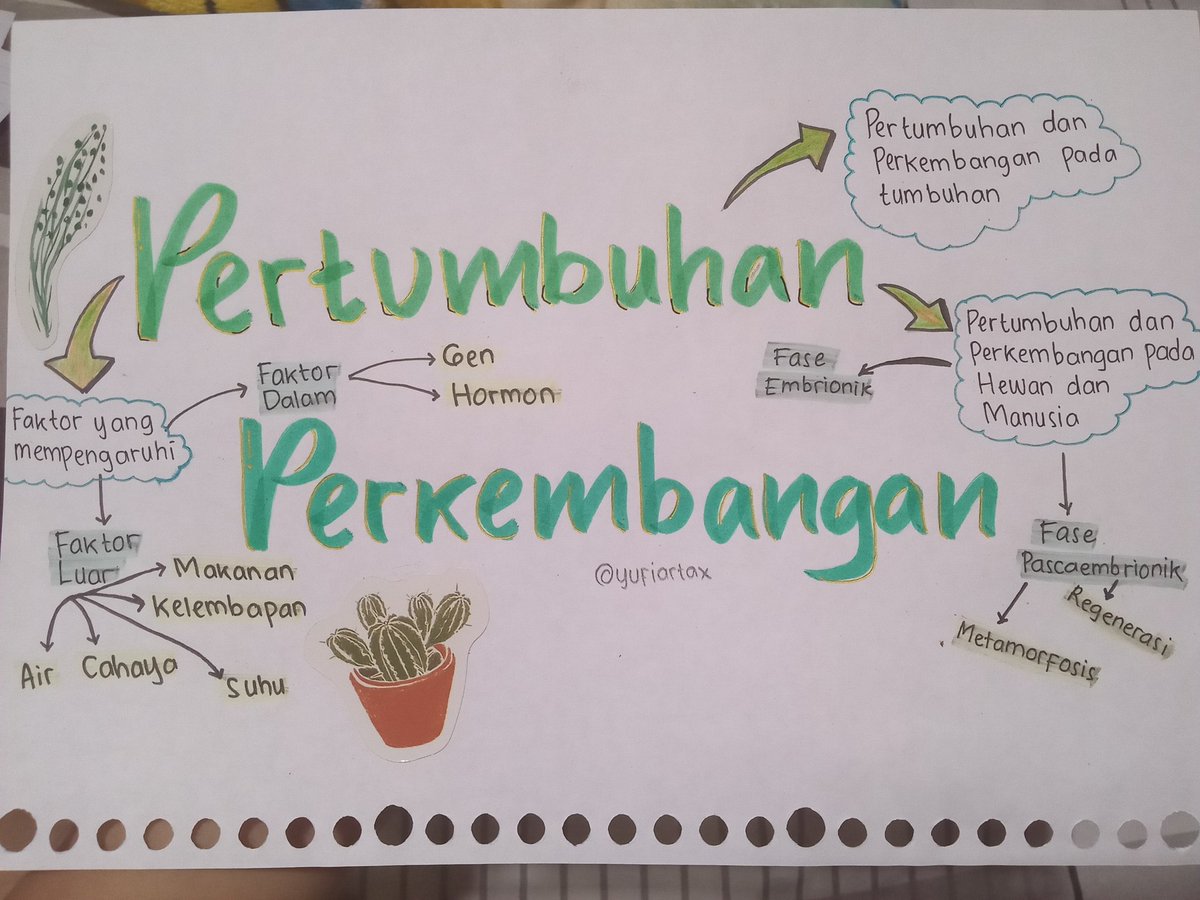 Pertumbuhan dan
Perkembangan pada
tumbuhan
Pertumbuhan
Pertumbuhan dan
Perkembangan pada
Hewan dan
Manusia
Fase
Embrionik
Gen
Hormon
Faktor
Dalam
Faktor yang
mempengaruhi
Perkembangan
@yufiartax
Faktor
Luar
Makanan
Kelembapan
Air
Cahaya
Suhu
Fase
Pascaembrionik
Regenerasi
Metamorfosis